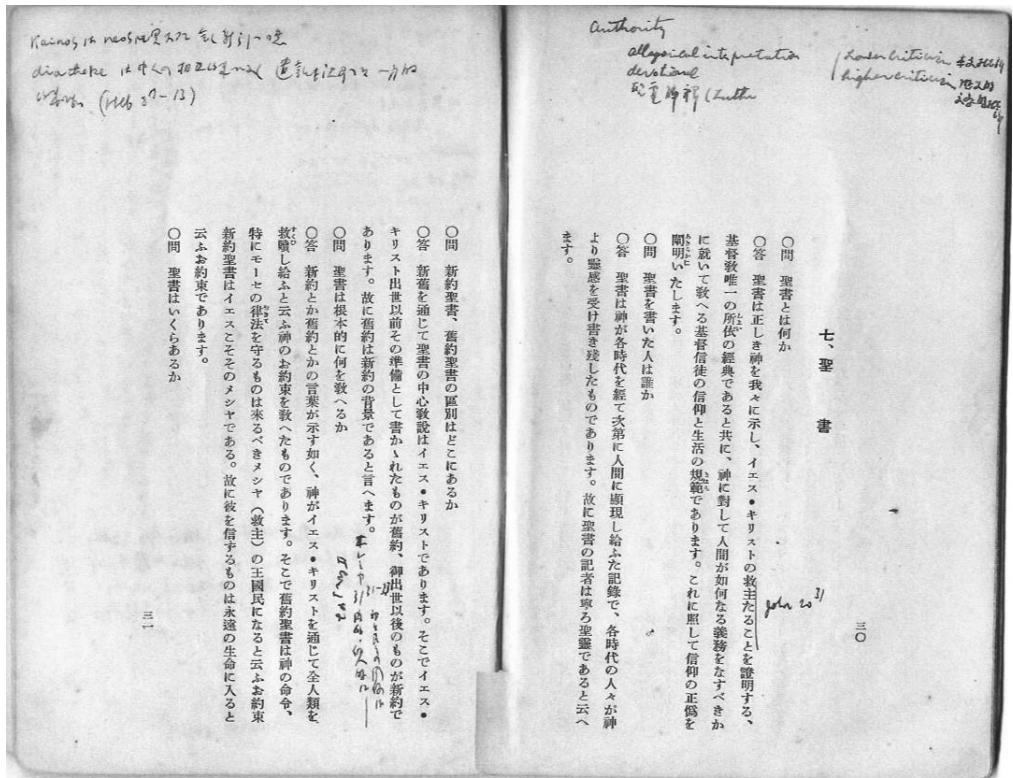 Authority
allegorical interpretation
devotional
Lower criticism
higher criticism
七、聖書
〇問　聖書とは何か
〇答　聖書は正しき神を我々に示し、イエス・キリストの救主たることを證明する、
基督敎唯一の所依の經典であると共に、神に對して人間が如何なる義務をなすべきか
に就いて敎へる基督信徒の信仰と生活の規範であります。これに照して信仰の正僞を
闡明いたします。
John 20 31
〇問　聖書を書いた人は誰か
〇答　聖書は神が各時代を經て次第に人間に顯現し給ふた記錄で、各時代の人々が神
より靈感を受け書き殘したものであります。故に聖書の記者は寧ろ聖靈であると云へ
ます。
三〇
Kainos は neos
diatheke は
(Heb
〇問　新約聖書、舊約聖書の區別はどこにあるか
〇答　新舊を通じて聖書の中心敎說はイエス・キリストであります。そこでイエス・
キリスト出世以前その準備として書かゝれたものが舊約、御出世以後のものが新約で
あります。故に舊約は新約の背景であると言へます。
〇問　聖書は根本的に何を敎へるか
〇答　新約とか舊約とかの言葉が示す如く、神がイエス・キリストを通じて全人類を
救贖し給ふと云ふ神のお約束を敎へたものであります。そこで舊約聖書は神の命令、
特にモーセの律法を守るものは來るべきメシヤ（救主）の王國民になると云ふお約束
新約聖書はイエスこそそのメシヤである。故に彼を信ずるものは永遠の生命に入ると
云ふお約束であります。
〇問　聖書はいくらあるか
三一